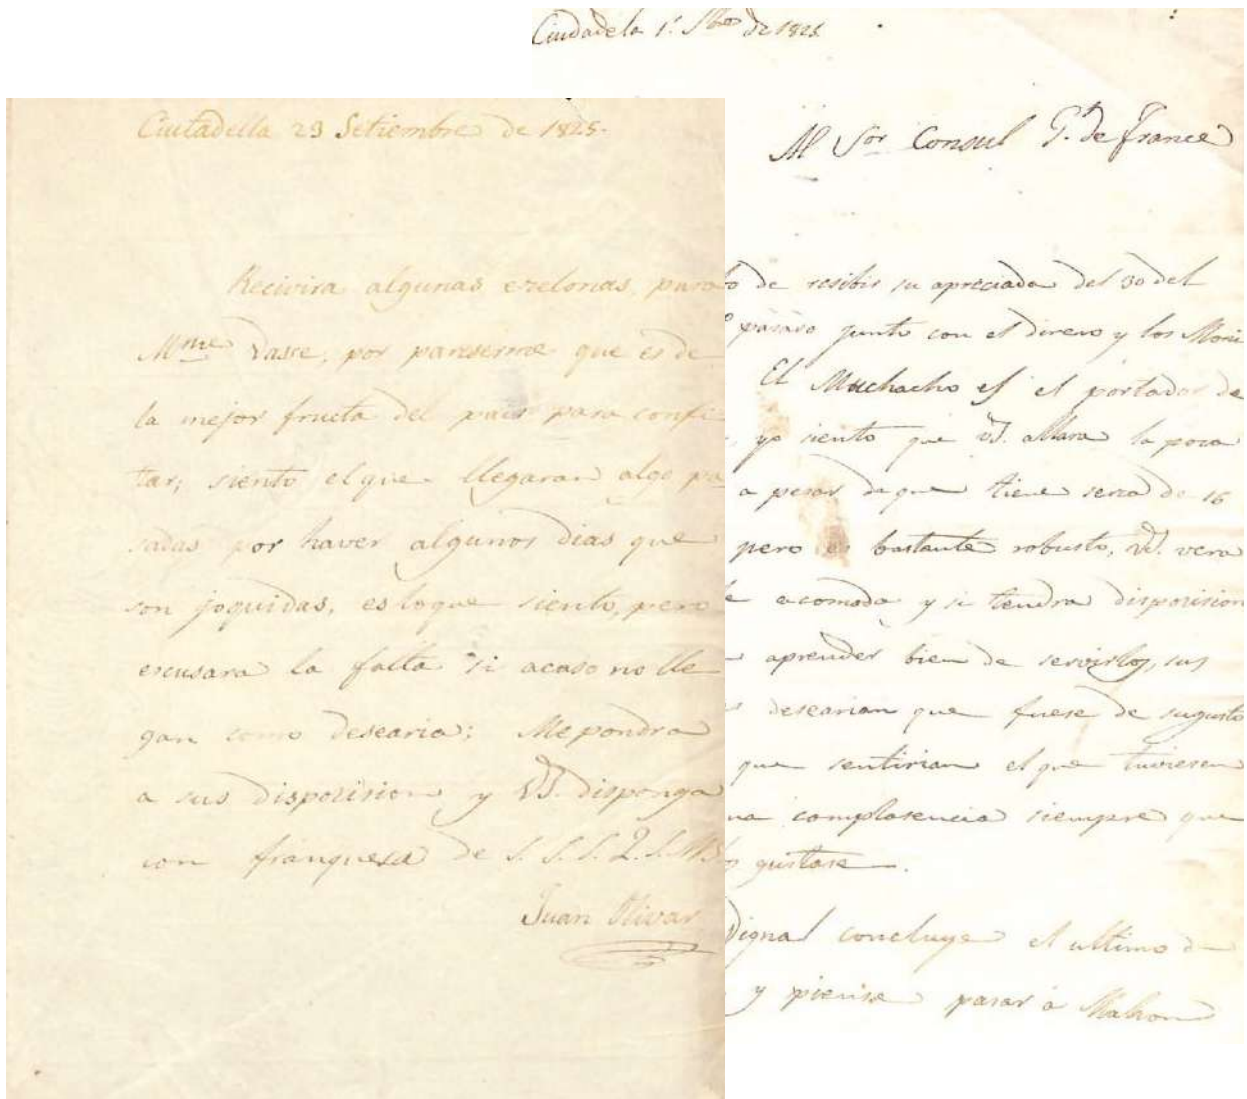 Ciutadella 29 Setiembre de 1825.
Recivira algunas ezelonas, para
Mme Vasse, por pareserme que es de
la mejor fructa del pais para confi
tar; siento el que llegaran algo pa
sadas por haver algunos dias que
son joquidas, es loque siento, pero
escusara la falta si acaso no lle
gan como desearia; Me pondra
a sus disposision y Vd. disponga
con franquesa de S. S. S. Q. S. M. B
Juan Olivar
Ciudadela 1º. 8bre de 1825
Al Sor Consul Gl. de France
de resibir su apreciada del 30 del
pasado junto con el dinero y los Moni
El Muchacho es el portador de
yo siento que Vd. allara la poca
a pesar deque tiene serca de 16
pero es bastante robusto, Vd. vera
acomoda y si tendra disposision
aprender bien de servirlos, sus
desearian que fuese de sugusto
que sentirian elque tuviesen
complasencia siempre que
gustase.
Vignal concluye el ultimo de
y piensa pasar a Mahon